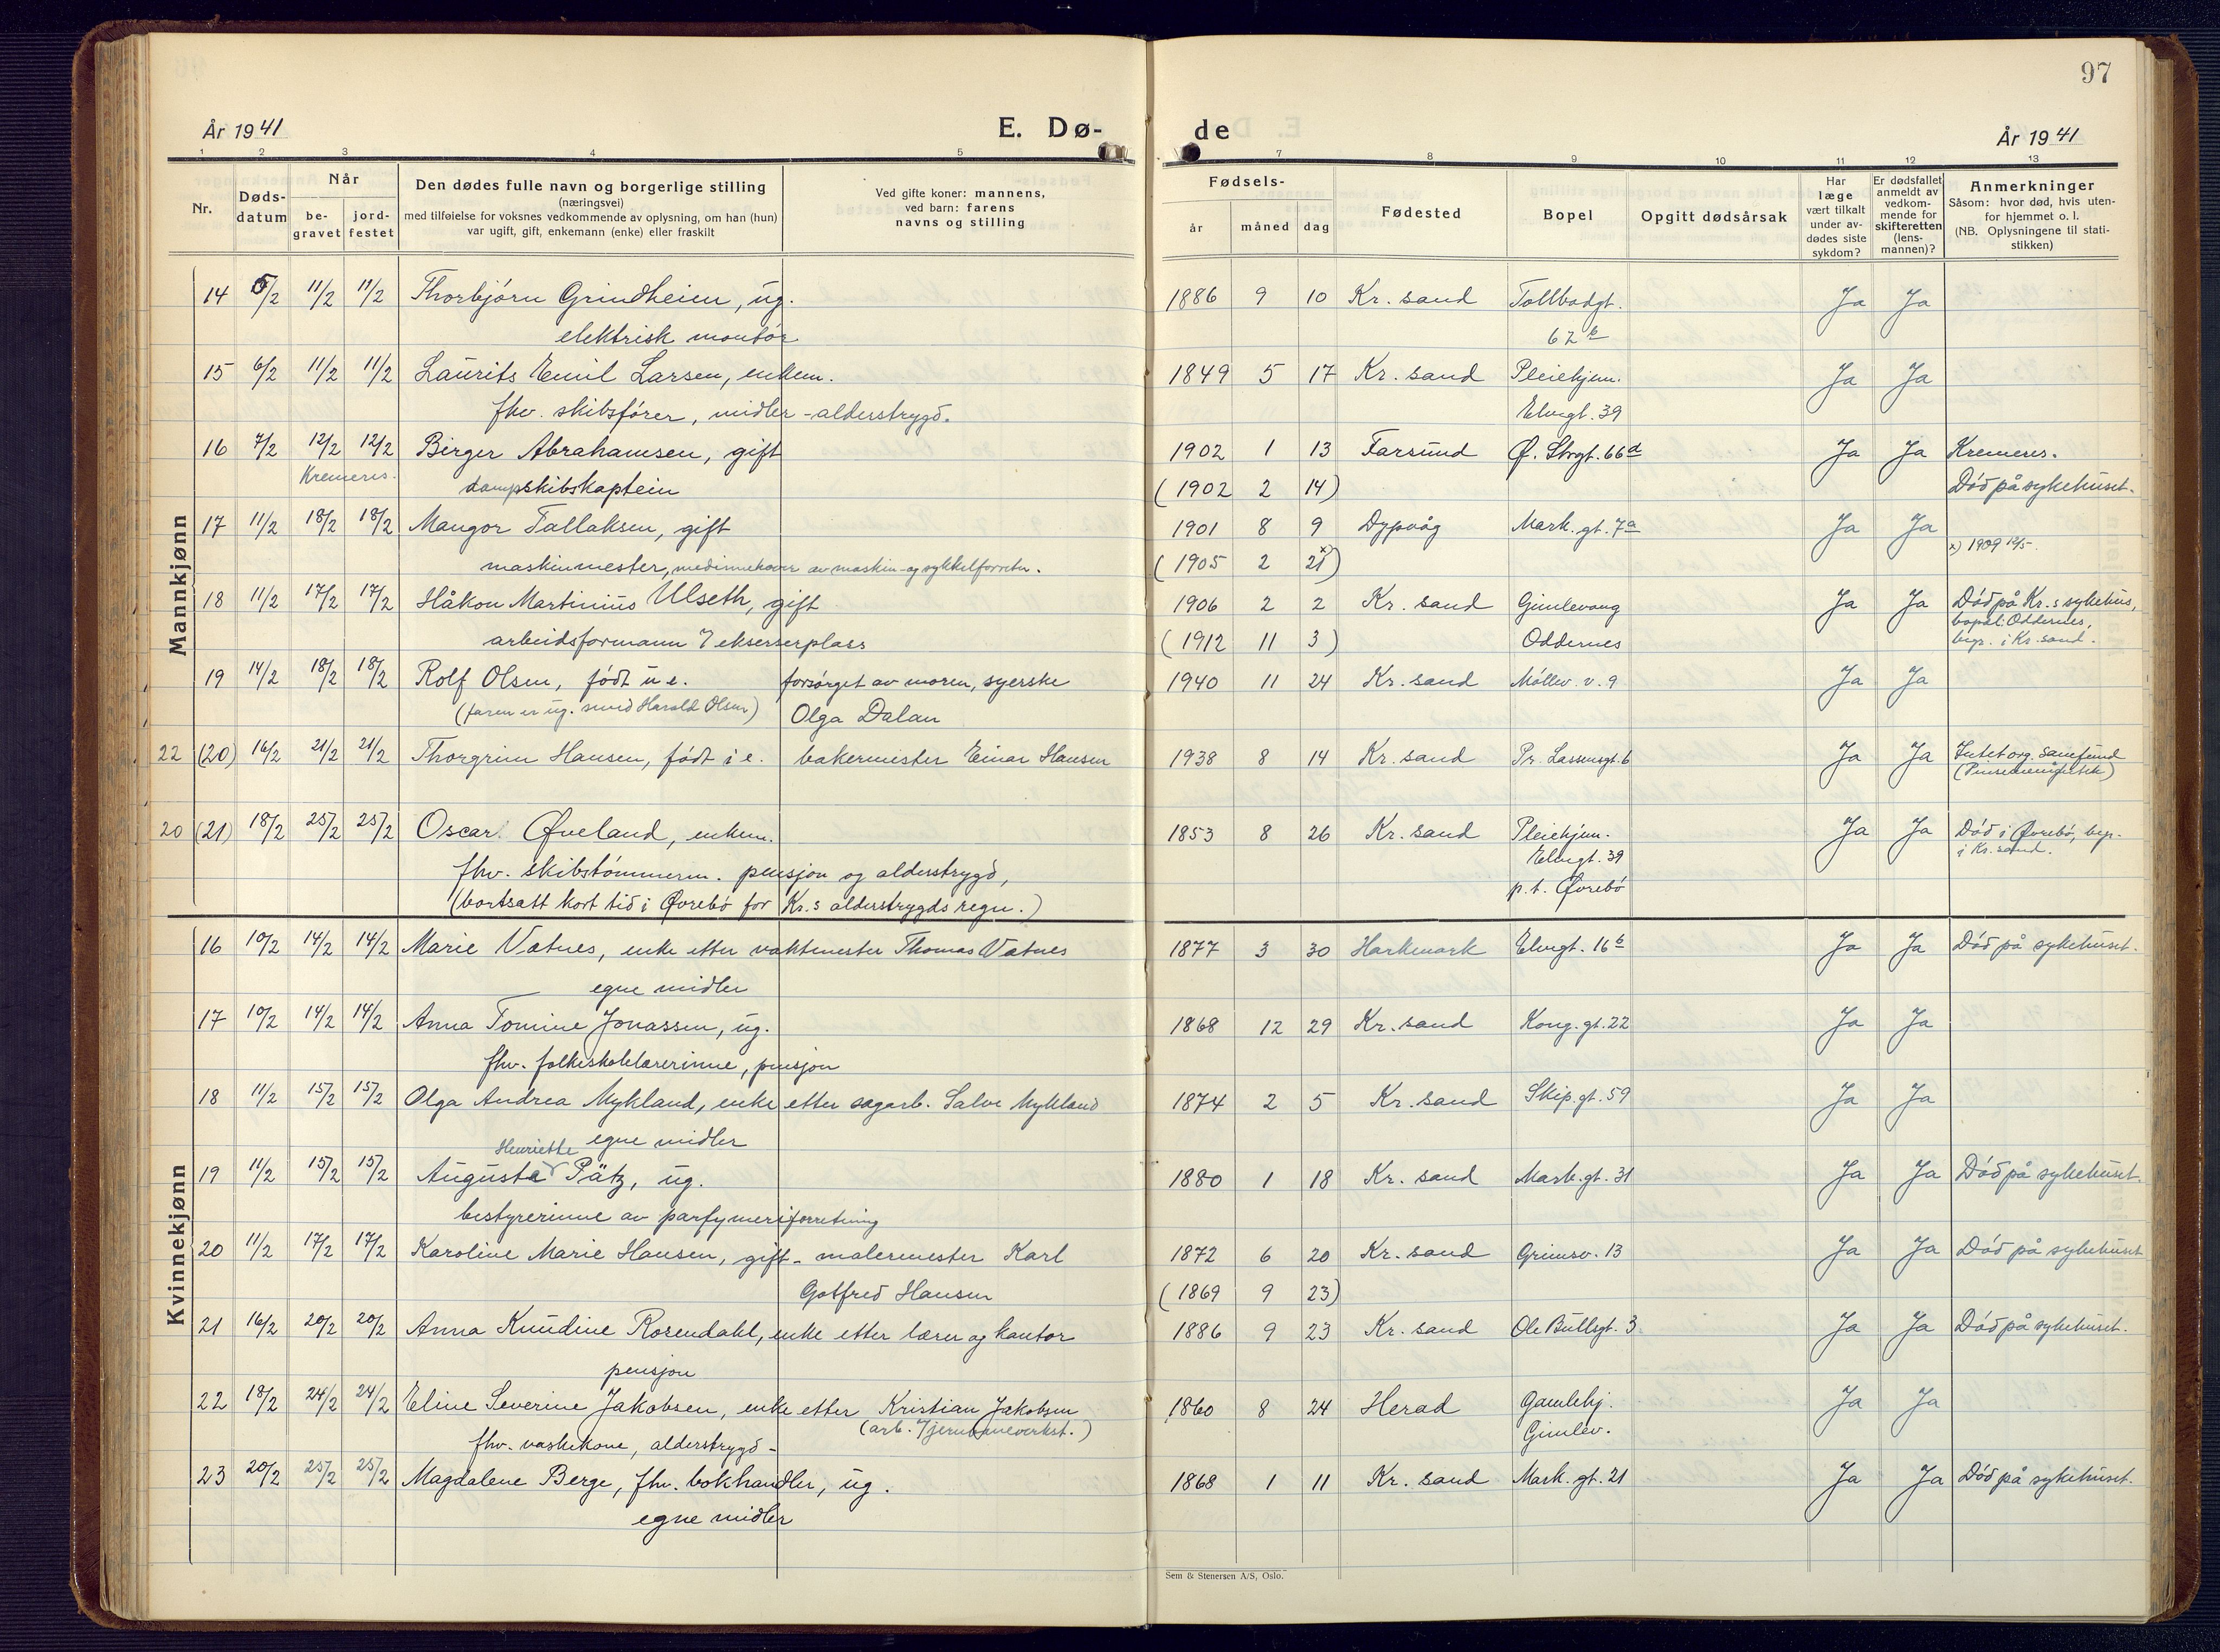 97
År 1941 E. Dø- de År 1941
1 2 3 4 5 7 8 9 10 11 12 13
Nr. Døds-datum Når be-gravet jord-festet
Den dødes fulle navn og borgerlige stilling
(næringsvei)
med tilføielse for voksnes vedkommende av oplysning, om han (hun)
var ugift, gift, enkemann (enke) eller fraskilt
Ved gifte koner: mannens,
ved barn: farens
navns og stilling
Fødsels- år måned dag
Fødested
Bopel
Opgitt dødsårsak
Har læge vært tilkalt under av-dødes siste sykdom?
Er dødsfallet anmeldt av vedkom-mende for skifteretten (lens-mannen)?
Anmerkninger
Såsom: hvor død, hvis uten-
for hjemmet o. l.
(NB. Oplysningene til stati-
stikken)
Mannkjønn
14 5/2 11/2 11/2 Thorbjørn Grindheim, ug. 1886 9 10 Kr. sand Tollbodgt. Ja Ja
elektrisk montør 62 b
15 6/2 11/2 11/2 Laurits Emil Larsen, enkem. 1849 5 17 Kr. sand Pleiehjem. Ja Ja
fhv. skibsfører, midler - alderstrygd. Elvegt. 39
16 7/2 12/2 12/2 Birger Abrahamsen, gift 1902 1 13 Farsund Ø. Strgt. 66 a Ja Ja Kremeres.
Kremeres. dampskibskaptein (1902 2 14) Død på sykehuset.
17 11/2 18/2 18/2 Mangor Tallaksen, gift 1901 8 9 Dypvåg Mark. gt. 7a Ja Ja
maskinmester, medinnehaver av maskin- og sykkelforretn. (1905 2 21 x) x) 1909
18 11/2 17/2 17/2 Håkon Martinius Ulseth, gift 1906 2 2 Kr. sand Gimlevang Ja Ja Død på Kr.s sykehus,
arbeidsformann / ekserserplass (1912 11 3) Oddernes bopæl: Oddernes,
begr. i Kr. sand.
19 14/2 18/2 18/2 Rolf Olsen, født u e. forsørget av moren, syerske 1940 11 24 Kr. sand Møllev. v. 9 Ja Ja
(faren er ug. smed Harald Olsen) Olga Dalan
22 (20) 16/2 21/2 21/2 Thorgrim Hansen, født i e. bakermester Einar Hansen 1938 8 14 Kr. sand Pr. Lassensgt. 6 Ja Ja Intet org. samfund
20 (21) 18/2 25/2 25/2 Oscar Øveland, enkem. 1853 8 26 Kr. sand Pleiehjem. Ja Ja Død i Øvrebø, begr.
fhv. skibstømmerm. pensjon og alderstrygd, Elvegt. 39 i Kr. sand.
(bortsatt kort tid i Øvrebø for Kr.s alderstrygds regn.) p. t. Øvrebø
Kvinnekjønn
16 10/2 14/2 14/2 Marie Vatnes, enke etter vaktmester Thomas Vatnes 1877 3 30 Harkmark Elvegt. 16 b Ja Ja Død på sykehuset.
egne midler
17 10/2 14/2 14/2 Anna Tomine Jonassen, ug. 1868 12 29 Kr. sand Kong. gt. 22 Ja Ja
fhv. folkeskolelærerinne, pensjon
18 11/2 15/2 15/2 Olga Andrea Mykland, enke etter sagarb. Salve Mykland 1874 2 5 Kr. sand Skip. gt. 59 Ja Ja
egne midler
Henriette
19 11/2 15/2 15/2 Augusta Pätz, ug. 1880 1 18 Kr. sand Mark. gt. 31 Ja Ja Død på sykehuset.
bestyrerinne av parfymeriforretning
20 11/2 17/2 17/2 Karoline Marie Hansen, gift - malermester Karl 1872 6 20 Kr. sand Grimsv. 13 Ja Ja Død på sykehuset
Gotfred Hansen (1869 9 23)
21 16/2 20/2 20/2 Anna Knudine Rosendahl, enke etter lærer og kantor 1886 9 23 Kr. sand Ole Bullsgt. 3 Ja Ja Død på sykehuset.
pensjon
22 18/2 24/2 24/2 Eline Severine Jakobsen, enke etter Kristian Jakobsen 1860 8 24 Herad Gamlehj. Ja Ja
fhv. vaskekone, alderstrygd - (arb. v/ jernbaneverkst.) Gimlev.
23 20/2 25/2 25/2 Magdalene Berge, fhv. bokhandler, ug. 1868 1 11 Kr. sand Mark. gt. 21 Ja Ja Død på sykehuset.
egne midler
Sem & Stenersen A/S, Oslo.